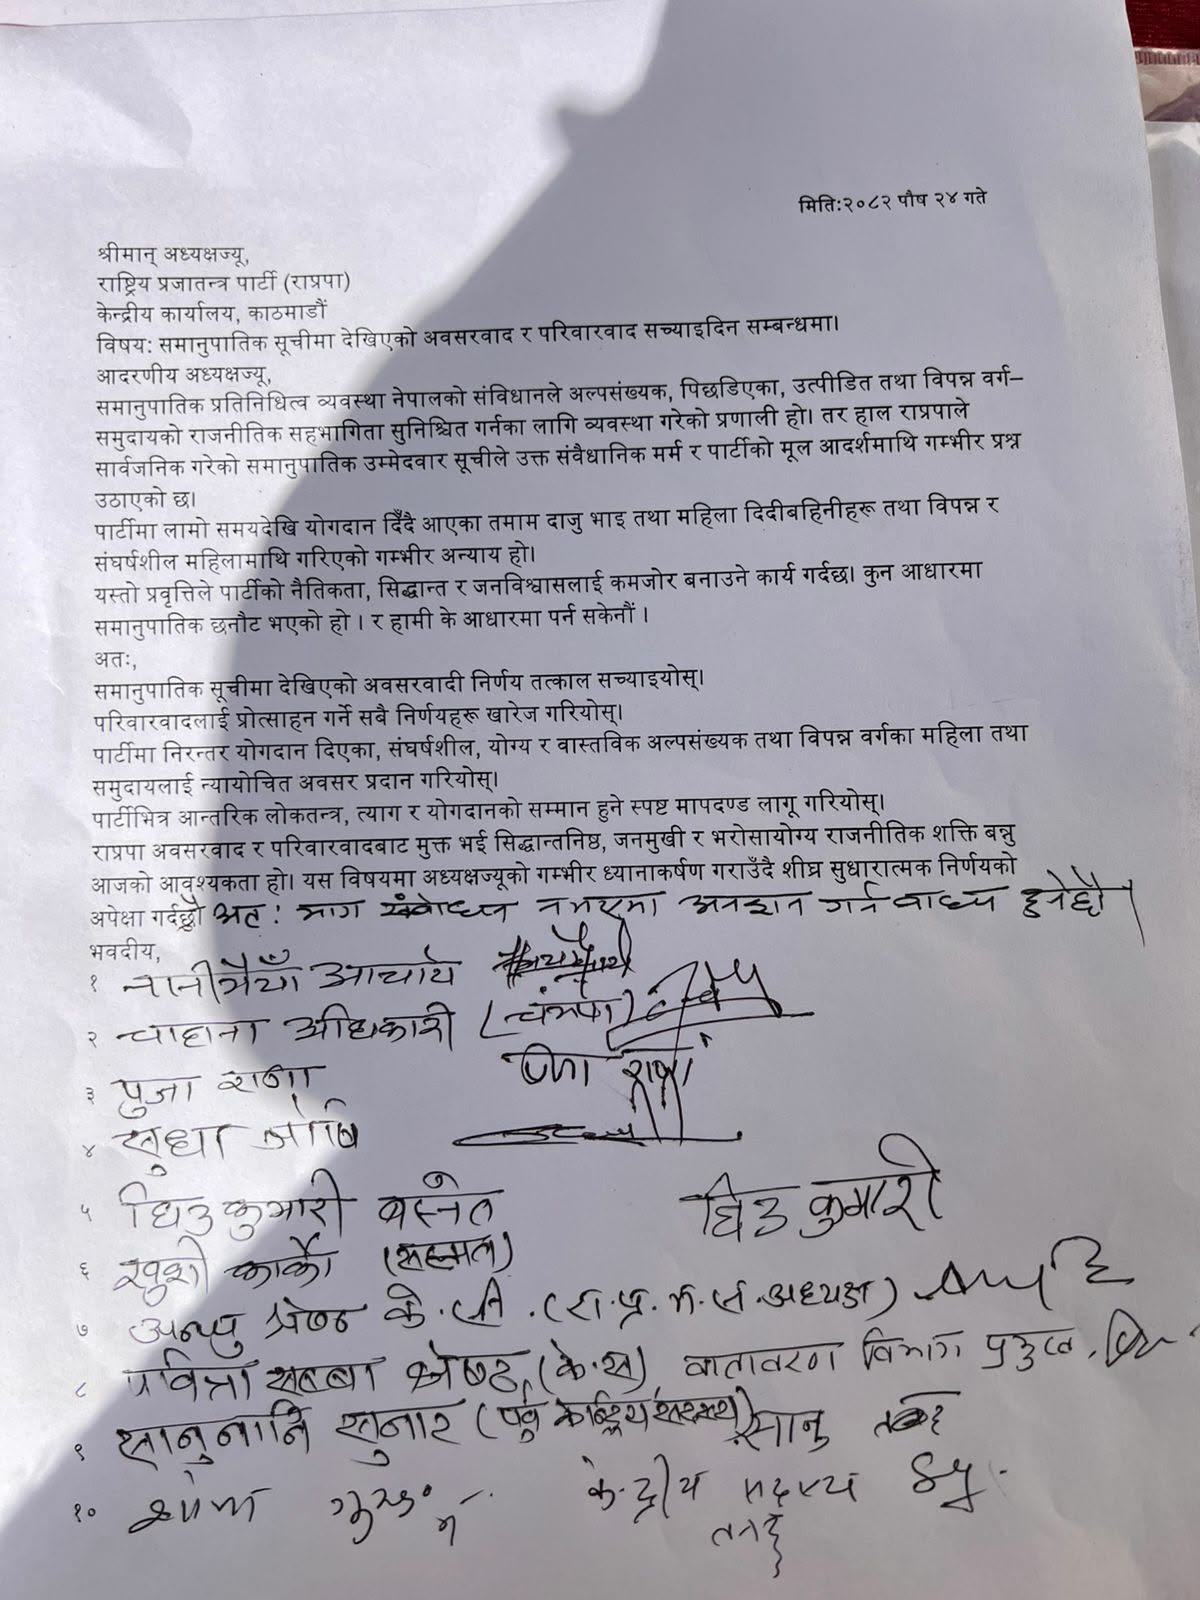 मिति:२०८२ पौष २४ गते
श्रीमान् अध्यक्षज्यू,
राष्ट्रिय प्रजातन्त्र पार्टी (राप्रपा)
केन्द्रीय कार्यालय, काठमाडौं
विषय: समानुपातिक सूचीमा देखिएको अवसरवाद र परिवारवाद सच्याइदिन सम्बन्धमा।
आदरणीय अध्यक्षज्यू,
समानुपातिक प्रतिनिधित्व व्यवस्था नेपालको संविधानले अल्पसंख्यक, पिछडिएका, उत्पीडित तथा विपन्न वर्ग–
समुदायको राजनीतिक सहभागिता सुनिश्चित गर्नका लागि व्यवस्था गरेको प्रणाली हो। तर हाल राप्रपाले
सार्वजनिक गरेको समानुपातिक उम्मेदवार सूचीले उक्त संवैधानिक मर्म र पार्टीको मूल आदर्शमाथि गम्भीर प्रश्न
उठाएको छ।
पार्टीमा लामो समयदेखि योगदान दिँदै आएका तमाम दाजु भाइ तथा महिला दिदीबहिनीहरू तथा विपन्न र
संघर्षशील महिलामाथि गरिएको गम्भीर अन्याय हो।
यस्तो प्रवृत्तिले पार्टीको नैतिकता, सिद्धान्त र जनविश्वासलाई कमजोर बनाउने कार्य गर्दछ। कुन आधारमा
समानुपातिक छनौट भएको हो । र हामी के आधारमा पर्न सकेनौं ।
अतः,
समानुपातिक सूचीमा देखिएको अवसरवादी निर्णय तत्काल सच्याइयोस्।
परिवारवादलाई प्रोत्साहन गर्ने सबै निर्णयहरू खारेज गरियोस्।
पार्टीमा निरन्तर योगदान दिएका, संघर्षशील, योग्य र वास्तविक अल्पसंख्यक तथा विपन्न वर्गका महिला तथा
समुदायलाई न्यायोचित अवसर प्रदान गरियोस्।
पार्टीभित्र आन्तरिक लोकतन्त्र, त्याग र योगदानको सम्मान हुने स्पष्ट मापदण्ड लागू गरियोस्।
राप्रपा अवसरवाद र परिवारवादबाट मुक्त भई सिद्धान्तनिष्ठ, जनमुखी र भरोसायोग्य राजनीतिक शक्ति बन्नु
आजको आवश्यकता हो। यस विषयमा अध्यक्षज्यूको गम्भीर ध्यानाकर्षण गराउँदै शीघ्र सुधारात्मक निर्णयको
अपेक्षा गर्दछौं अत: माग संबोधन नभएमा अनशन गर्न वाध्य हुनेछौं।
भवदीय,
१ नानीमैयाँ आचार्य
२ चाहाना अधिकारी (चंम्फा)
३ पुजा राना पुजा राना
४ सुधा जोषि
५ घिउकुमारी बस्नेत घिउकुमारी
६ खुशी कार्की (सहमत)
७ अन्जु श्रेष्ठ के.सी. (रा.प्र.म.सं.अध्यक्ष)
८ पवित्रा सुब्बा श्रेष्ठ, (के.स) वातावरण विभाग प्रमुख.
९ सानुनानि सुनार (पुर्व केन्द्रिय सदस्य) सानु
१० केन्द्रीय सदस्य
तनहुँ